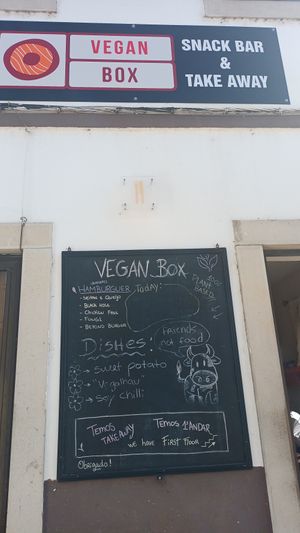 VEGAN
BOX
SNACK BAR
&
TAKE AWAY
VEGAN BOX
HAMBURGUER
Today:
100%
PLANT
BASED
- SEITAN & QUEIJO
- BLACK HOLE
- CHICKEN FREE
- FUNGI
- BEYOND BURGER
DISHES:
friends
not food
→ sweet potato
→ "V-galhau"
→ soy chilli
TEMOS
TAKE AWAY
TEMOS 1º ANDAR
WE HAVE FIRST FLOOR
Obrigado!